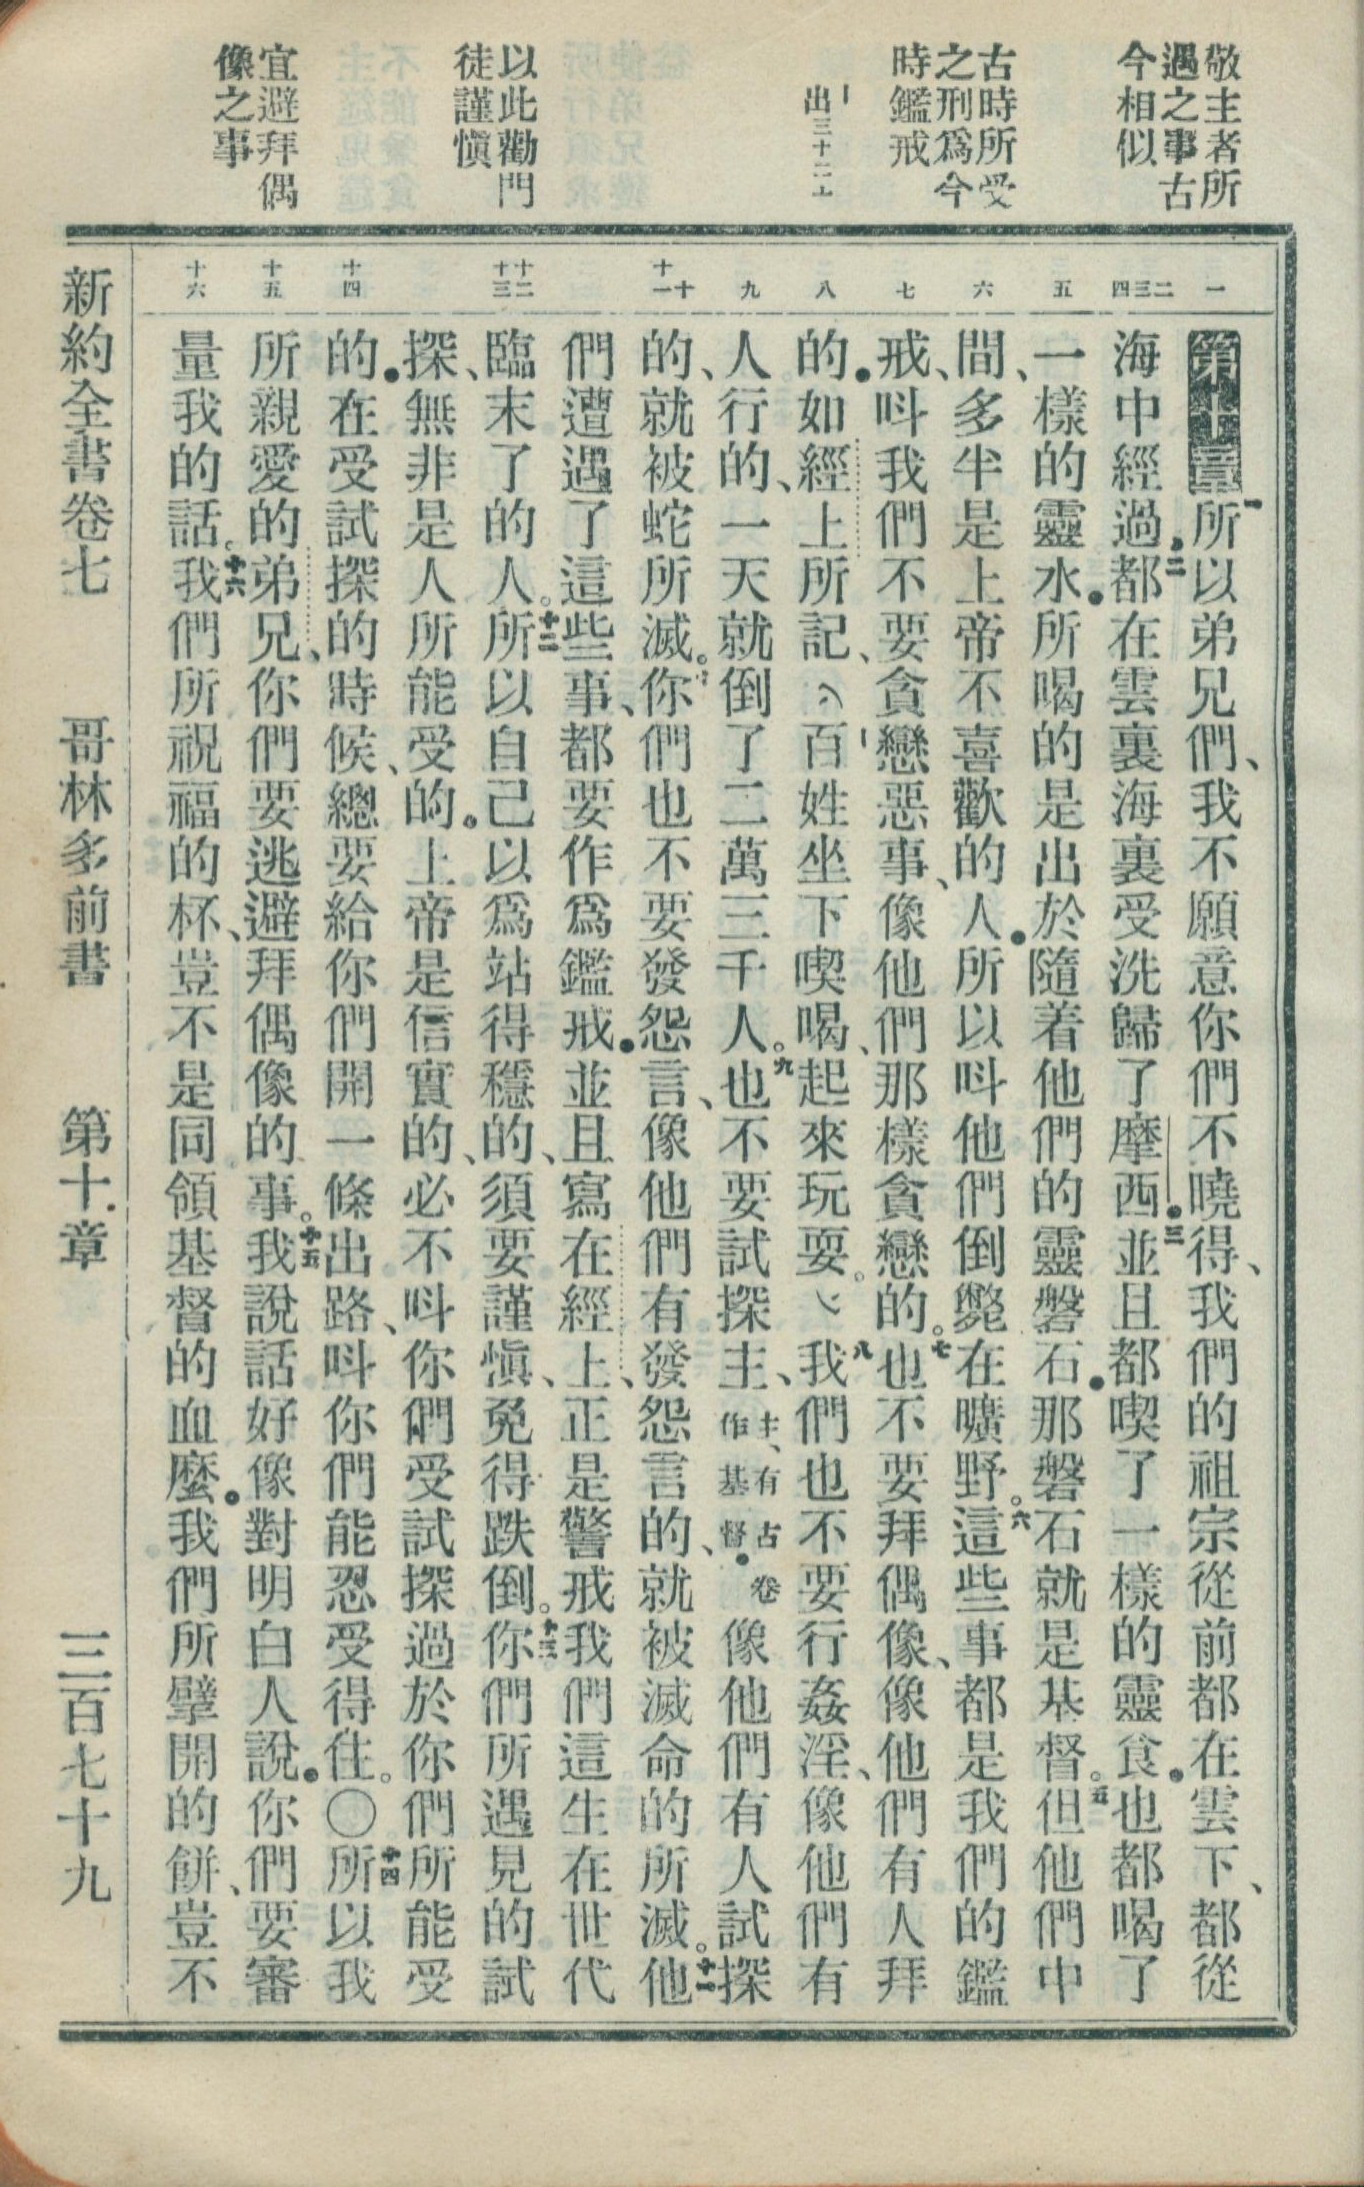 敬主者所
遇之事古
今相似
古時所受
之刑爲今
時鑑戒
出三十二
以此勸門
徒謹愼
宜避拜偶
像之事
一
二三四
五
六
七
八
九
十十一
十二十三
十四
十五
十六
第十章一所以弟兄們、我不願意你們不曉得、我們的祖宗從前都在雲下、都從
海中經過●二都在雲裏海裏受洗歸了摩西●三並且都喫了一樣的靈食●也都喝了
一樣的靈水●所喝的是出於隨着他們的靈磐石●那磐石就是基督。五但他們中
間、多半是上帝不喜歡的人●所以呌他們倒斃在曠野。六這些事都是我們的鑑
戒、呌我們不要貪戀惡事、像他們那樣貪戀的。七也不要拜偶像、像他們有人拜
的●如經上所記、百姓坐下喫喝、起來玩耍。八我們也不要行姦淫、像他們有
人行的、一天就倒了二萬三千人。九也不要試探主、主、有古卷作基督●像他們有人試探
的、就被蛇所滅。你們也不要發怨言、像他們有發怨言的、就被滅命的所滅。十一他
們遭遇了這些事、都要作爲鑑戒●並且寫在經上、正是警戒我們這生在世代
臨末了的人。十二所以自己以爲站得穩的、須要謹愼、免得跌倒。十三你們所遇見的試
探、無非是人所能受的。上帝是信實的、必不呌你們受試探過於你們所能受
的●在受試探的時候、總要給你們開一條出路、呌你們能忍受得住。〇十四所以我
所親愛的弟兄、你們要逃避拜偶像的事。十五我說話好像對明白人說●你們要審
量我的話。十六我們所祝福的杯、豈不是同領基督的血麼●我們所擘開的餅、豈不
新約全書卷七 哥林多前書 第十章 三百七十九